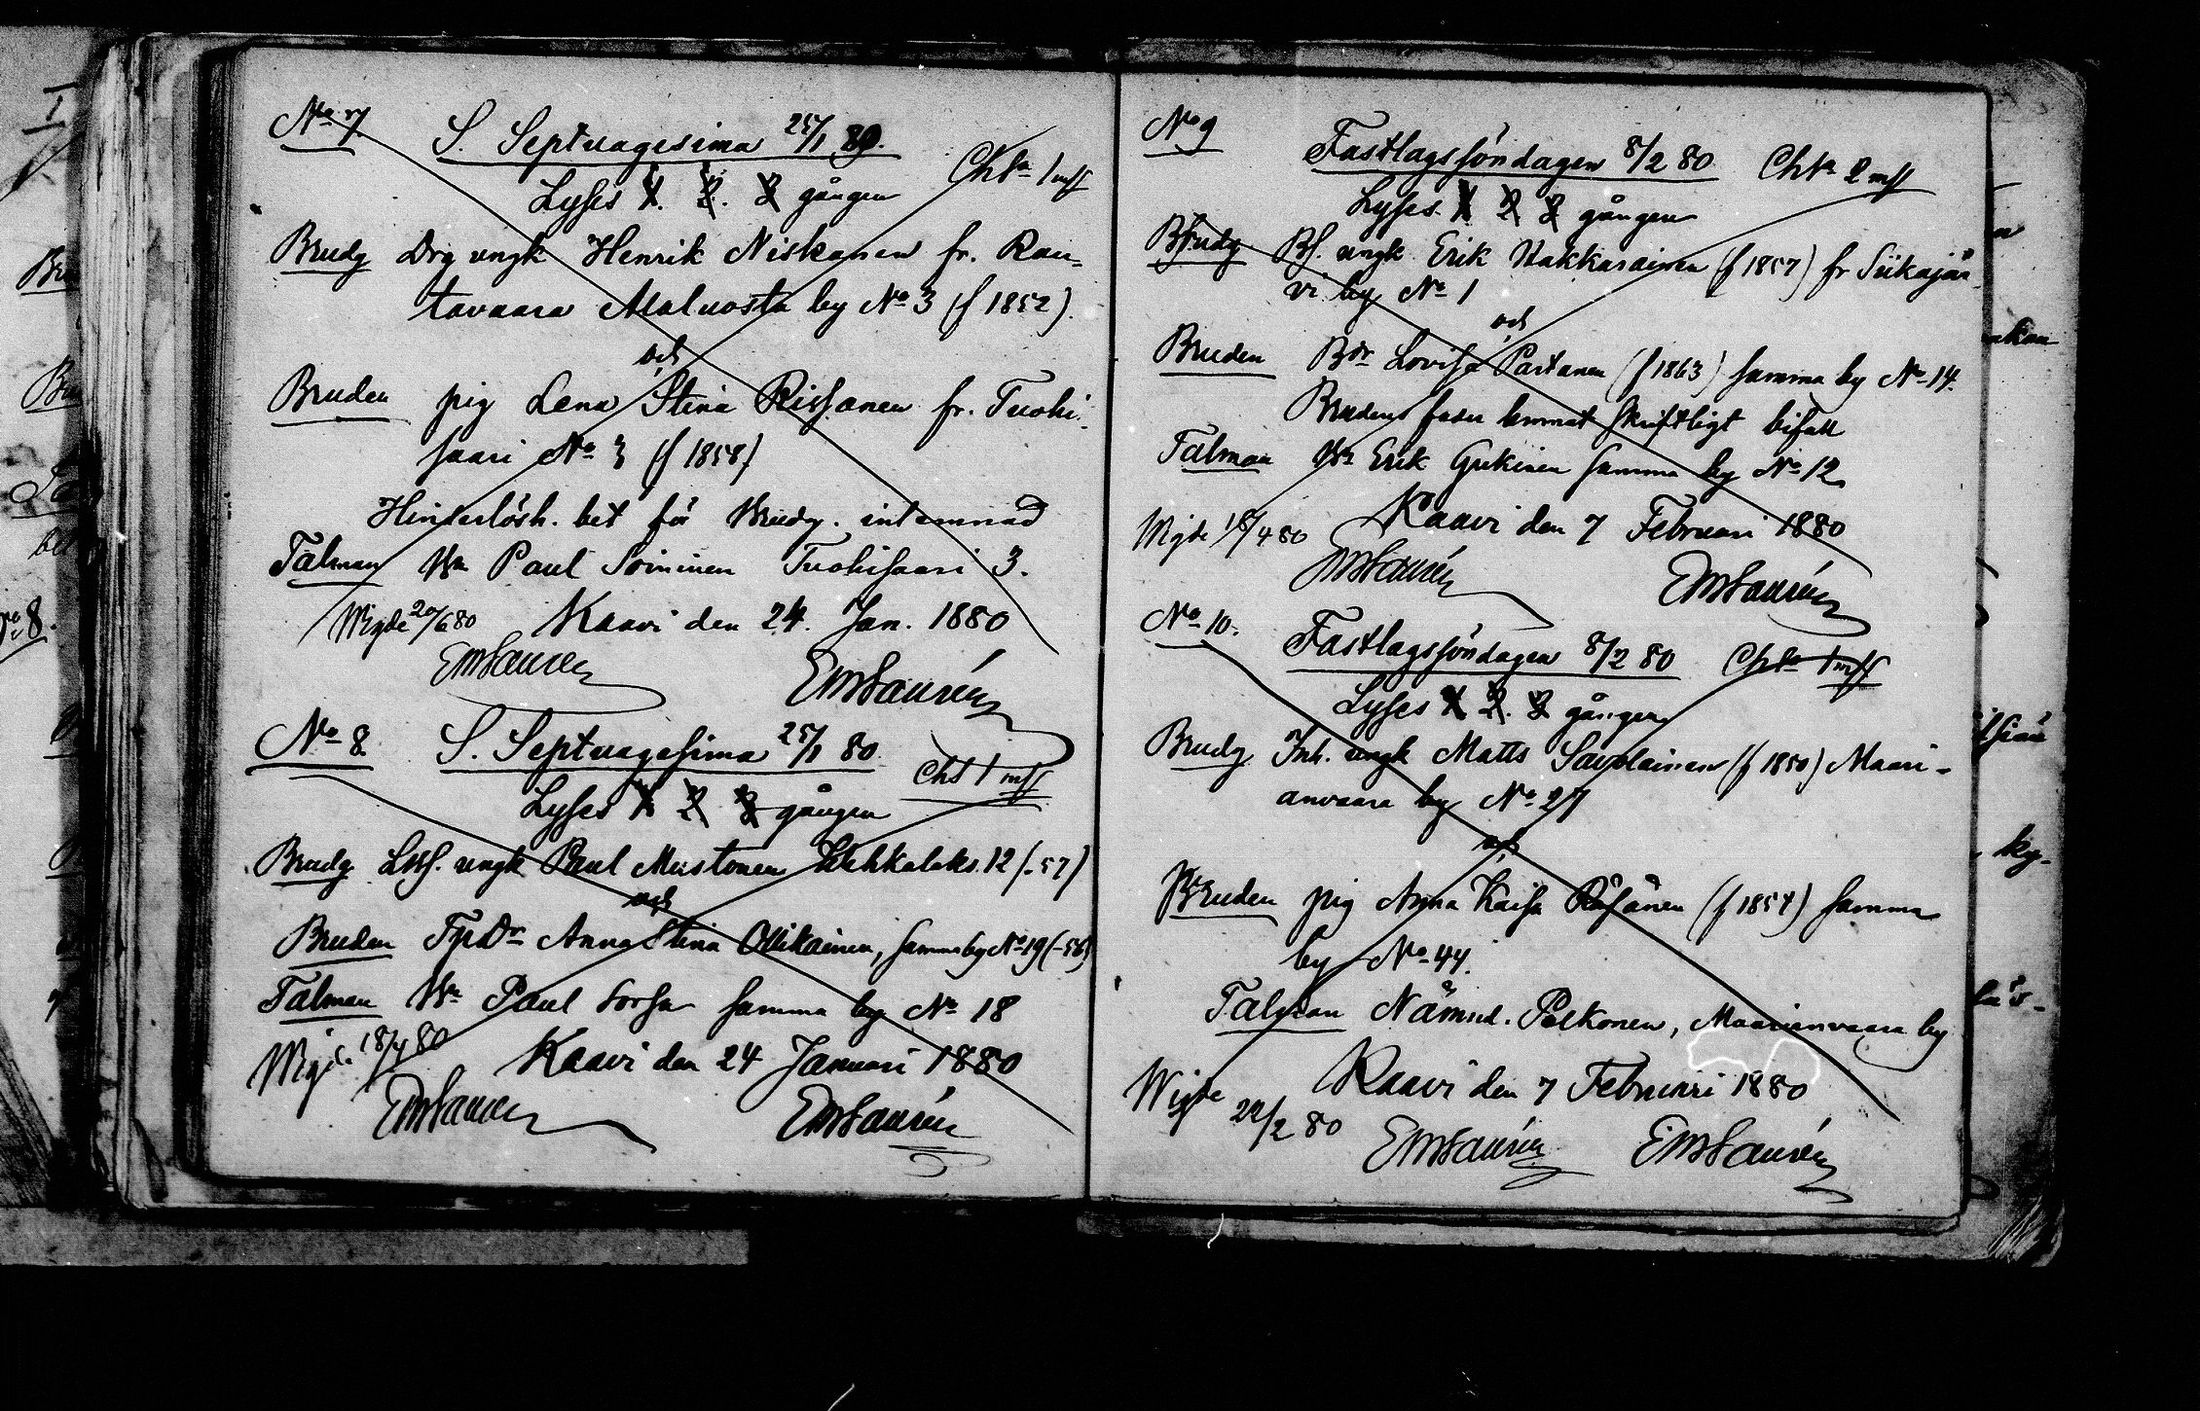 No 7
S. Septuagesima 25/1 80.
Lyses 1. 2. 3 gången
Chta 1 mk
Brudg Drg ungk Henrik Niskanen fr. Rau-
tavaara Maluosta by No 3 (f 1852).
och
Bruden pig Lena Stina Rissanen fr. Tuohi-
saari No 3 (f 1858)
Hinderlösh. bet för Brudg. inlemnad
Talman Bn Paul Soininen Tuohisaari 3.
Wigde 20/6 80 Kaavi den 24. Jan. 1880
EMSaurén EMSaurén
No 8
S. Septuagesima 25/1 80
Lyses 1 2 3 gången
Cht 1 mk
Brudg Lösf. ungk Paul Mustonen 12 (-57)
och
Bruden Anna Stina Ollikainen, samma by No 19 (-56)
Talman Bn Paul Sorsa samma by No 18
Wigde 18/4 80 Kaavi den 24 Januari 1880
EMSaurén EMSaurén
No 9
Fastlagssöndagen 8/2 80
Chta 2 mk
Lyses 1 2 3 gången
Brudg Bs. ungk Erik Hakkarainen (f 1857) fr Siikajär-
vi by No 1
och
Bruden Bdr Lovisa Partanen (f 1863) samma by No 14.
Brudens fader lemnat skriftligt bifall
Talman Bn Erik samma by No 12
Wigde 18/4 80 Kaavi den 7 Februari 1880
EMSaurén EMSaurén
No 10.
Fastlagssöndagen 8/2 80
Chta 1 mk
Lyses 1 2. 3 gången
Brudg Inh. ungk Matts Savolainen (f 1850) Maari-
anvaara by No 27
och
Bruden pig Anna Kaisa Räsänen (f 1854) samma
by No 44.
Talman Nämnd. Pelkonen, Maarianvaara by
Wigde 22/2 80 Kaavi den 7 Februari 1880
EMSaurén EMSaurén